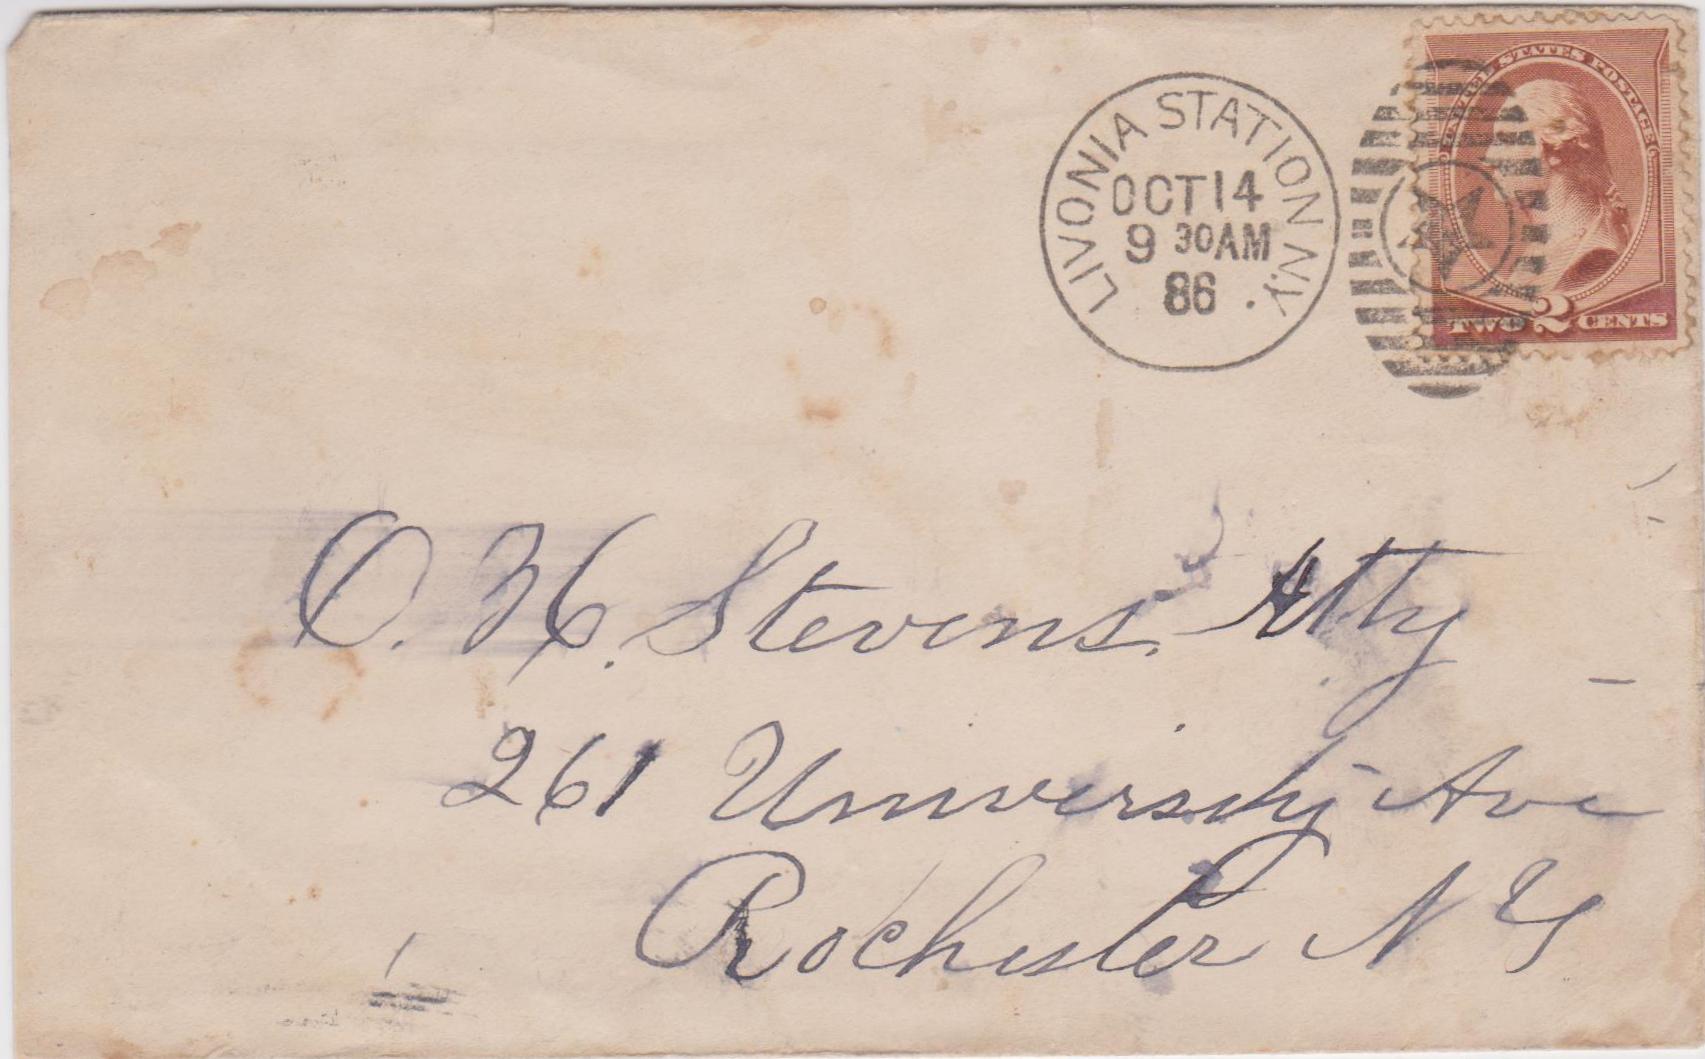 LIVONIA STATION N.Y.
OCT 14
9 30 AM
86
UNITED STATES POSTAGE
TWO 2 CENTS
O. H. Stevens. Atty
261 University Ave
Rochester N Y